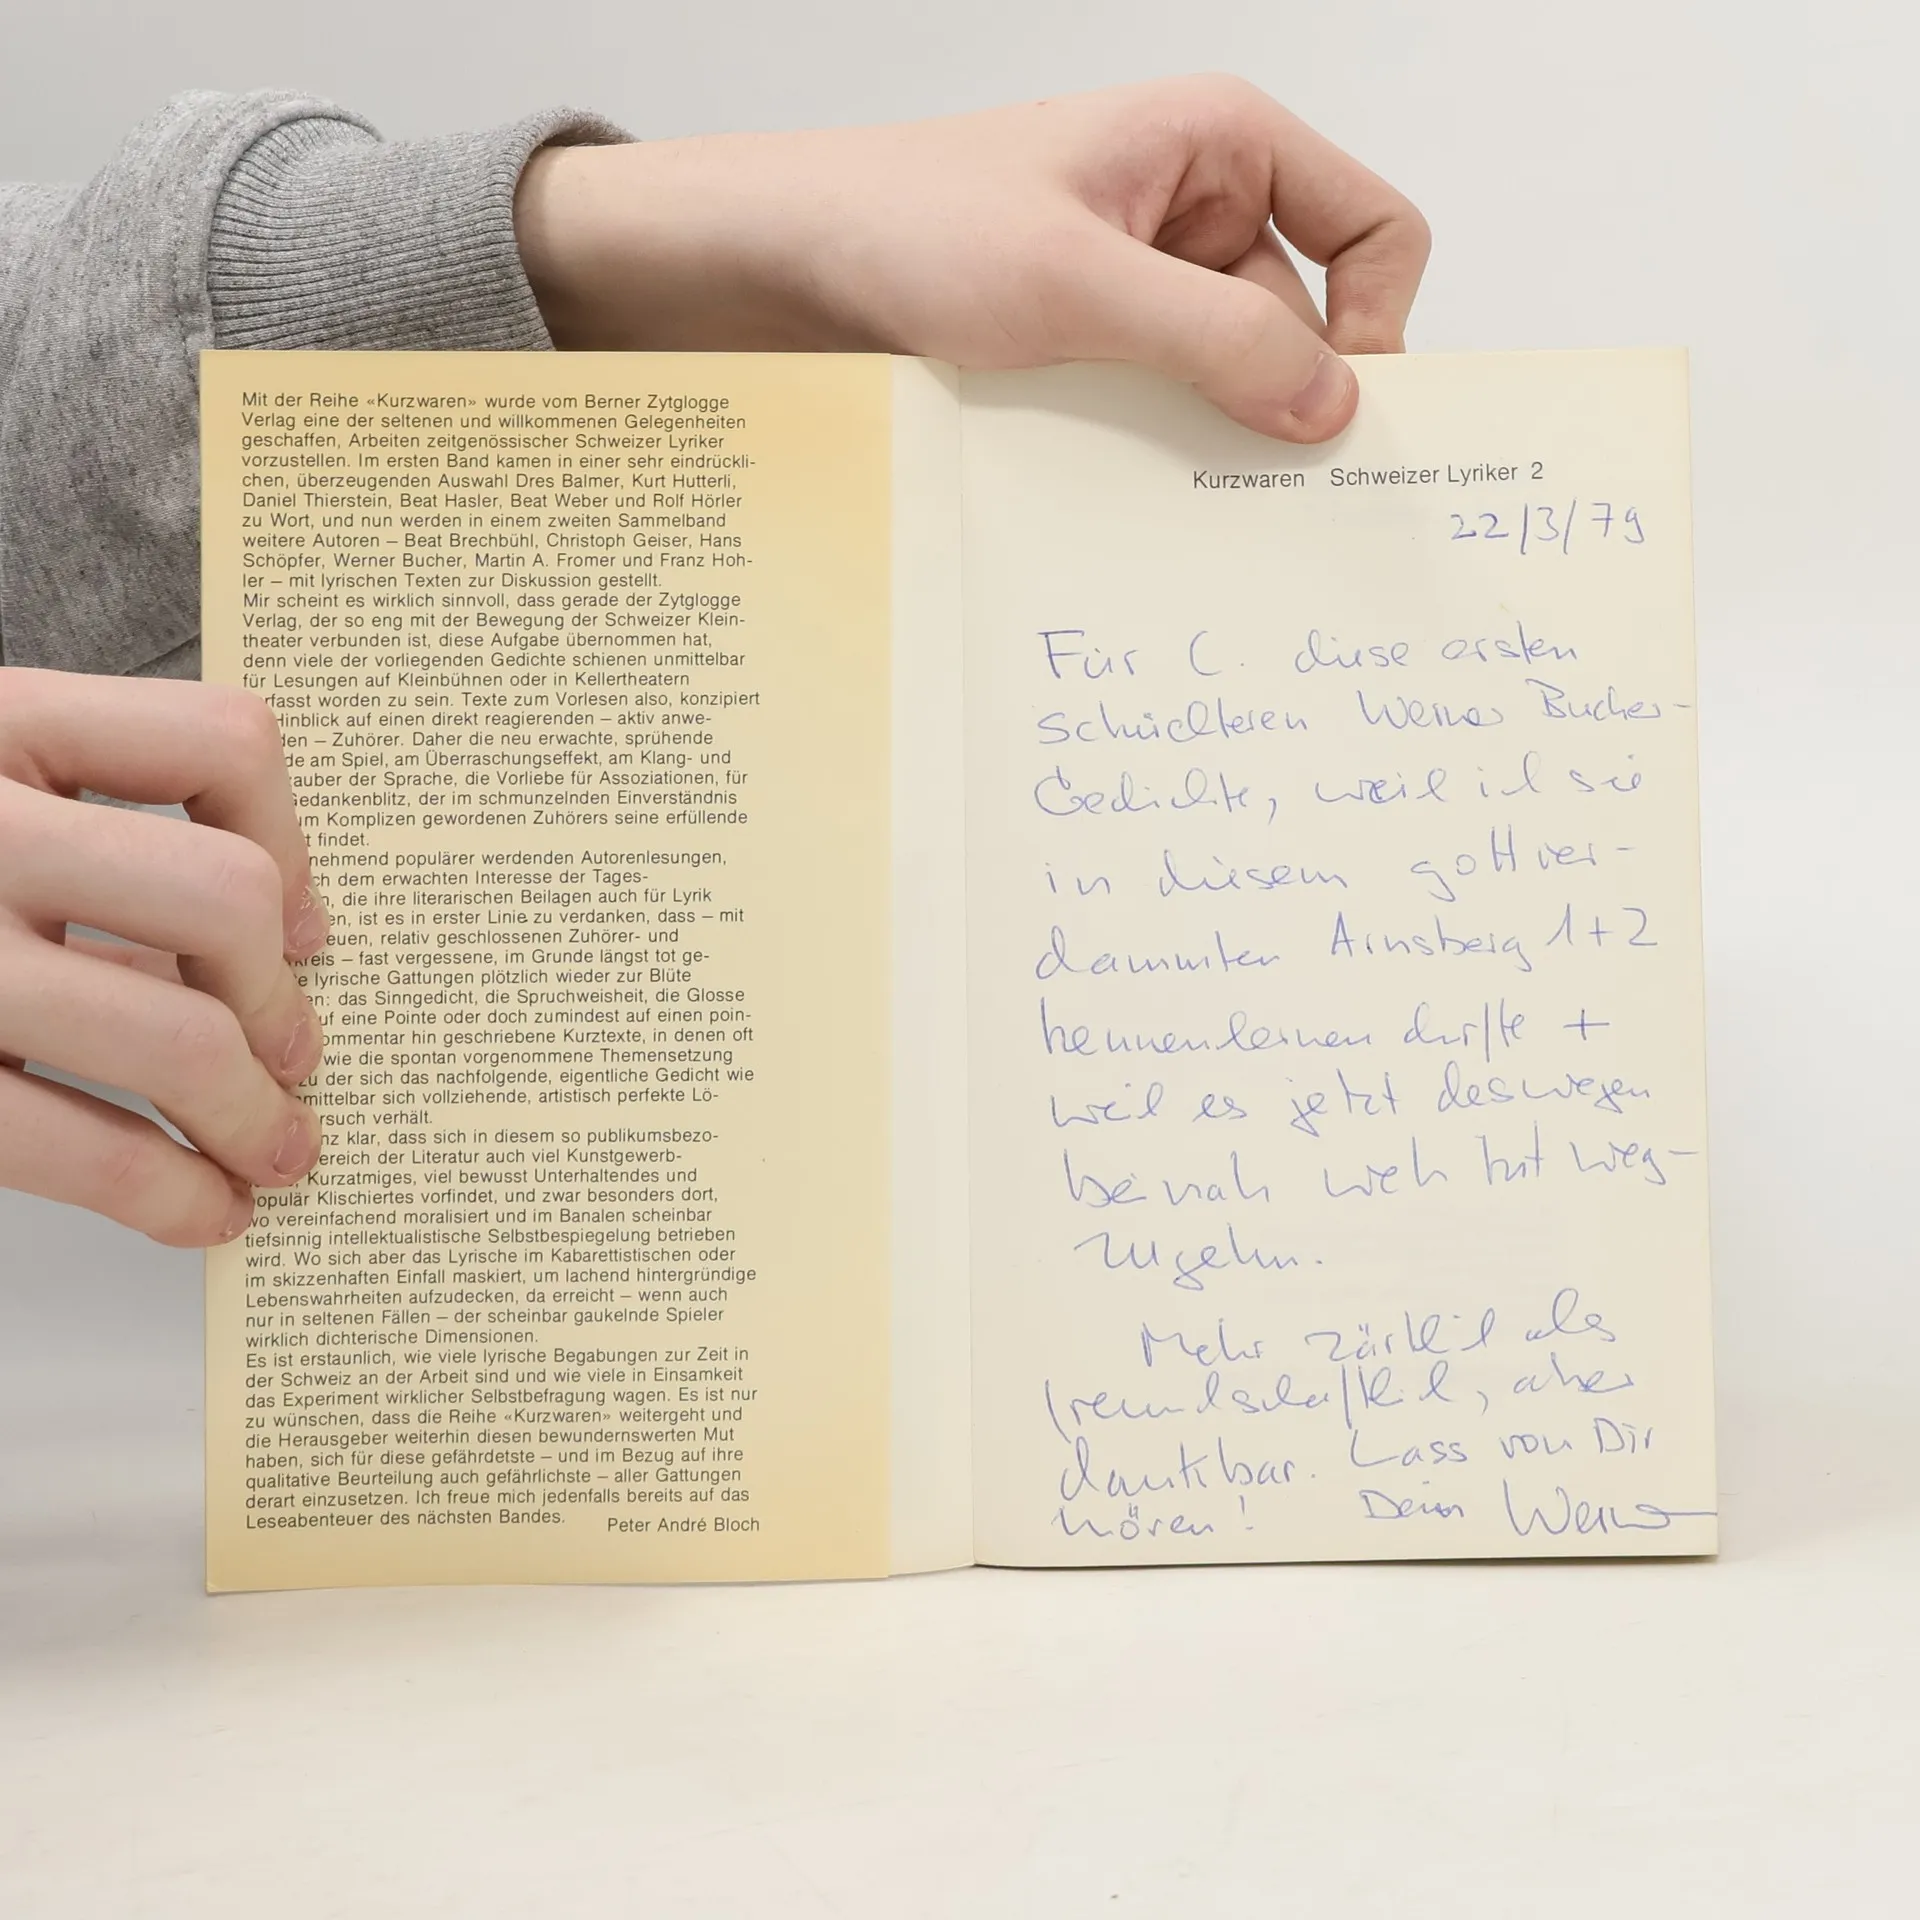 Mit der Reihe «Kurzwaren» wurde vom Berner Zytglogge
Verlag eine der seltenen und willkommenen Gelegenheiten
geschaffen, Arbeiten zeitgenössischer Schweizer Lyriker
vorzustellen. Im ersten Band kamen in einer sehr eindrückli-
chen, überzeugenden Auswahl Dres Balmer, Kurt Hutterli,
Daniel Thierstein, Beat Hasler, Beat Weber und Rolf Hörler
zu Wort, und nun werden in einem zweiten Sammelband
weitere Autoren – Beat Brechbühl, Christoph Geiser, Hans
Schöpfer, Werner Bucher, Martin A. Fromer und Franz Hoh-
ler – mit lyrischen Texten zur Diskussion gestellt.
Mir scheint es wirklich sinnvoll, dass gerade der Zytglogge
Verlag, der so eng mit der Bewegung der Schweizer Klein-
theater verbunden ist, diese Aufgabe übernommen hat,
denn viele der vorliegenden Gedichte schienen unmittelbar
für Lesungen auf Kleinbühnen oder in Kellertheatern
rfasst worden zu sein. Texte zum Vorlesen also, konzipiert
Hinblick auf einen direkt reagierenden – aktiv anwe-
den – Zuhörer. Daher die neu erwachte, sprühende
de am Spiel, am Überraschungseffekt, am Klang- und
zauber der Sprache, die Vorliebe für Assoziationen, für
Gedankenblitz, der im schmunzelnden Einverständnis
um Komplizen gewordenen Zuhörers seine erfüllende
t findet.
nehmend populärer werdenden Autorenlesungen,
ch dem erwachten Interesse der Tages-
n, die ihre literarischen Beilagen auch für Lyrik
en, ist es in erster Linie zu verdanken, dass – mit
euen, relativ geschlossenen Zuhörer- und
kreis – fast vergessene, im Grunde längst tot ge-
e lyrische Gattungen plötzlich wieder zur Blüte
en: das Sinngedicht, die Spruchweisheit, die Glosse
uf eine Pointe oder doch zumindest auf einen poin-
ommentar hin geschriebene Kurztexte, in denen oft
wie die spontan vorgenommene Themensetzung
zu der sich das nachfolgende, eigentliche Gedicht wie
mittelbar sich vollziehende, artistisch perfekte Lö-
rsuch verhält.
nz klar, dass sich in diesem so publikumsbezo-
ereich der Literatur auch viel Kunstgewerb-
Kurzatmiges, viel bewusst Unterhaltendes und
populär Klischiertes vorfindet, und zwar besonders dort,
wo vereinfachend moralisiert und im Banalen scheinbar
tiefsinnig intellektualistische Selbstbespiegelung betrieben
wird. Wo sich aber das Lyrische im Kabarettistischen oder
im skizzenhaften Einfall maskiert, um lachend hintergründige
Lebenswahrheiten aufzudecken, da erreicht – wenn auch
nur in seltenen Fällen – der scheinbar gaukelnde Spieler
wirklich dichterische Dimensionen.
Es ist erstaunlich, wie viele lyrische Begabungen zur Zeit in
der Schweiz an der Arbeit sind und wie viele in Einsamkeit
das Experiment wirklicher Selbstbefragung wagen. Es ist nur
zu wünschen, dass die Reihe «Kurzwaren» weitergeht und
die Herausgeber weiterhin diesen bewundernswerten Mut
haben, sich für diese gefährdetste – und im Bezug auf ihre
qualitative Beurteilung auch gefährlichste – aller Gattungen
derart einzusetzen. Ich freue mich jedenfalls bereits auf das
Leseabenteuer des nächsten Bandes.
Peter André Bloch
Kurzwaren Schweizer Lyriker 2
22/3/79
Für C. diese ersten
schüchteren Werner Bucher-
Gedichte, weil ich sie
in diesem gottver-
dammten Arnsberg 1+2
kennenlernen durfte +
weil es jetzt deswegen
beinah weh tut weg-
zugehn.
Mehr zärtlich als
freundschaftlich, aber
dankbar. Lass von Dir
hören! Dein Werner